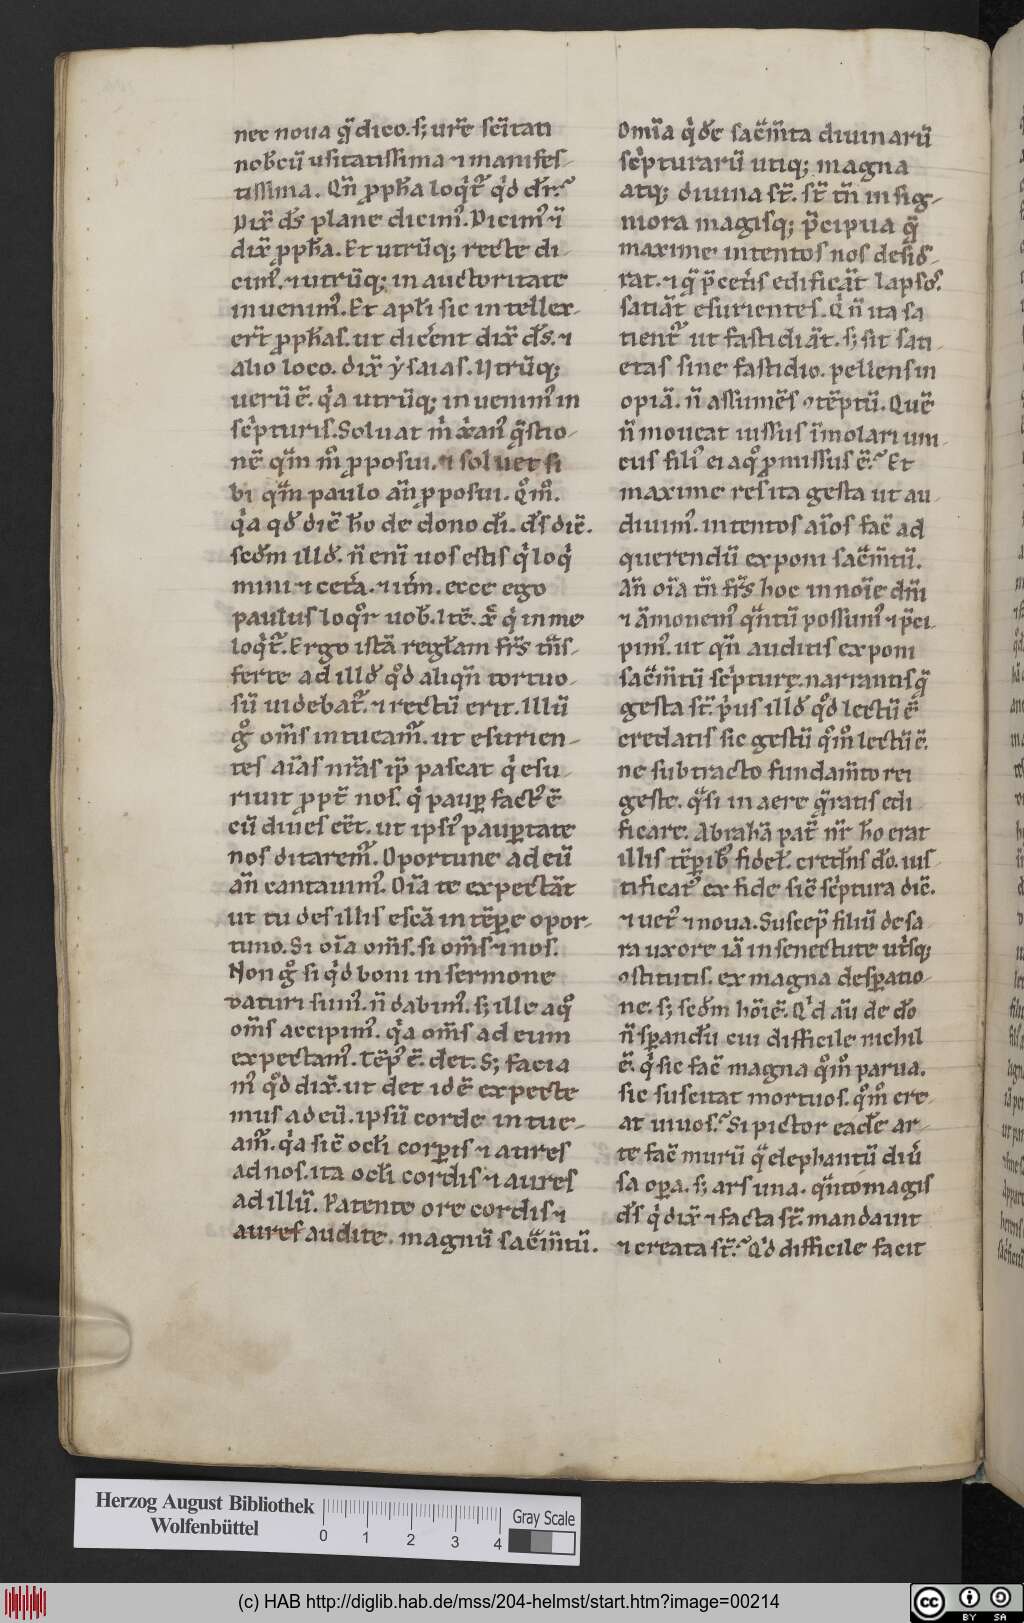 nec noua q̄ dico. s; ur̄e sc̄itati
nob̄cū usitatissima ⁊ manifes-
tissima. Qn̄ ꝓph̄a loqͥt̄ qͥd dr̄?
Dix̄ ds̄ plane dicimꝰ. Dicimꝰ ⁊
dix̄ ꝓph̄a. Et utrūq; recte di-
cimꝰ. ⁊ utrūq; in auctoritate
inuenimꝰ. Et apl̄i sic intellex-
er̄t ꝓph̄as. ut dicēnt dix̄ ds̄. ⁊
alio loco. dix̄ ysaias. Utrūq;
uerū ē. qͥa utrūq; inuenimꝰ in
sc̄pturis. Soluat m̄ xͥanꝰ q̄stio-
nē qͣm mͦ ꝓposui. ⁊ soluet si
bi qͣm paulo an̄ ꝓposui. Qͦmͦ.
qͥa qd̄ dic̄ h̄o de dono dī. ds̄ dic̄.
scd̄m illd̄. n̄ eni uos estis qͥ loqͥ
mini ⁊ cetͣ. ⁊ itm̄. ecce ego
paulus loqͦr uob̄. Itē. xͨ qͥ in me
loqͥt̄. Ergo istā regl̄am fr̄s tn̄s-
ferte ad illd̄ qͦd aliqn̄ tortuo-
sū uidebat̄. ⁊ rectū erit. Illū
gͦ om̄s intueam̄. ut esurien-
tes aīas nr̄as ip̄ pascat qͥ esu-
riuit ꝓpt̄ nos. qͥ paup̄ factꝰ ē
cū diues eēt. ut ipsiꝰ paup̄tate
nos ditarem̄. Oportune ad eū
an̄ cantauimꝰ. Oīa te expectāt
ut tu des illis escā in tēp̄e opor-
tuno. Si oīa om̄s. si om̄s ⁊ nos.
Non gͦ si qͥd boni in sermone
daturi sumꝰ. n̄ dabimꝰ. s; ille a qͦ
om̄s accipimꝰ. qͥa om̄s ad eum
expectamꝰ. Tēpꝰ ē. det. S; facia
mꝰ qͦd dix̄. ut det idē expecte
mus ad eū. ipsū corde intue-
am̄. qͥa sic̄ ocl̄i corp̄is ⁊ aures
ad nos. ita ocl̄i cordis ⁊ aures
ad illū. Patente ore cordis ⁊
aures audite. magnū sac̄m̄tū.
Omīa qͥde sac̄m̄ta diuinarū
sc̄pturarū utiq; magna
atq; diuina st̄. st̄ tn̄ insig-
niora magisq; p̄cipua q̄
maxime intentos nos desid̄-
rat. ⁊ q̄ p̄ cet̄is edificāt lapsos.
satiāt esurientes. Qͥ n̄ ita sa
tient̄ ut fastidiāt. s; sit sati-
etas sine fastidio. pellens in
opiā. n̄ assumēs ↄtēptū. Quē
n̄ moueat iussus īmolari uni-
cus filiꝰ ei a qͦ ꝓmissus ē? Et
maxime res ita gesta ut au-
diuimꝰ. intentos aīos fac̄ ad
querendū exponi sac̄m̄tū.
An̄ oīa tn̄ fr̄s hoc in noīe dn̄i
⁊ āmonemꝰ qͣntū possumꝰ ⁊ p̄ci-
pimꝰ. ut qn̄ auditis exponi
sac̄m̄tū sc̄pturę. narrantis q̄
gesta st̄. pͥus illd̄ qͦd lectū ē
credatis sic gestū qͦmͦ lectū ē.
ne subtracto fundam̄to rei
geste. qͣsi in aere q̄ratis edi
ficare. Abrahā pat̄ nr̄ h̄o erat
illis tēp̄ibꝰ fidel̄. cred̄ns dō. ius-
tificatꝰ ex fide sic̄ sc̄ptura dic̄.
⁊ uet̄ ⁊ noua. Suscep̄ filiū de sa
ra uxore iā in senectute ut̄sq;
ↄstitutis. ex magna desp̄atio-
ne. s; scd̄m hōiē. Qͥd aū de dō
n̄ sp̄andū cui difficile nichil
ē. qͥ sic fac̄ magna qͦmͦ parua.
sic suscitat mortuos. qͦmͦ cre-
at uiuos? Si pictor ead̄e ar-
te fac̄ murū q̄ elephantū diū
sa op̄a. s; ars una. qͣnto magis
ds̄ qͥ dix̄ ⁊ facta st̄. mandauit
⁊ creata st̄? Qͥd difficile facit
Herzog August Bibliothek
Wolfenbüttel
0 1 2 3 4
Gray Scale
(c) HAB http://diglib.hab.de/mss/204-helmst/start.htm?image=00214
cc BY SA